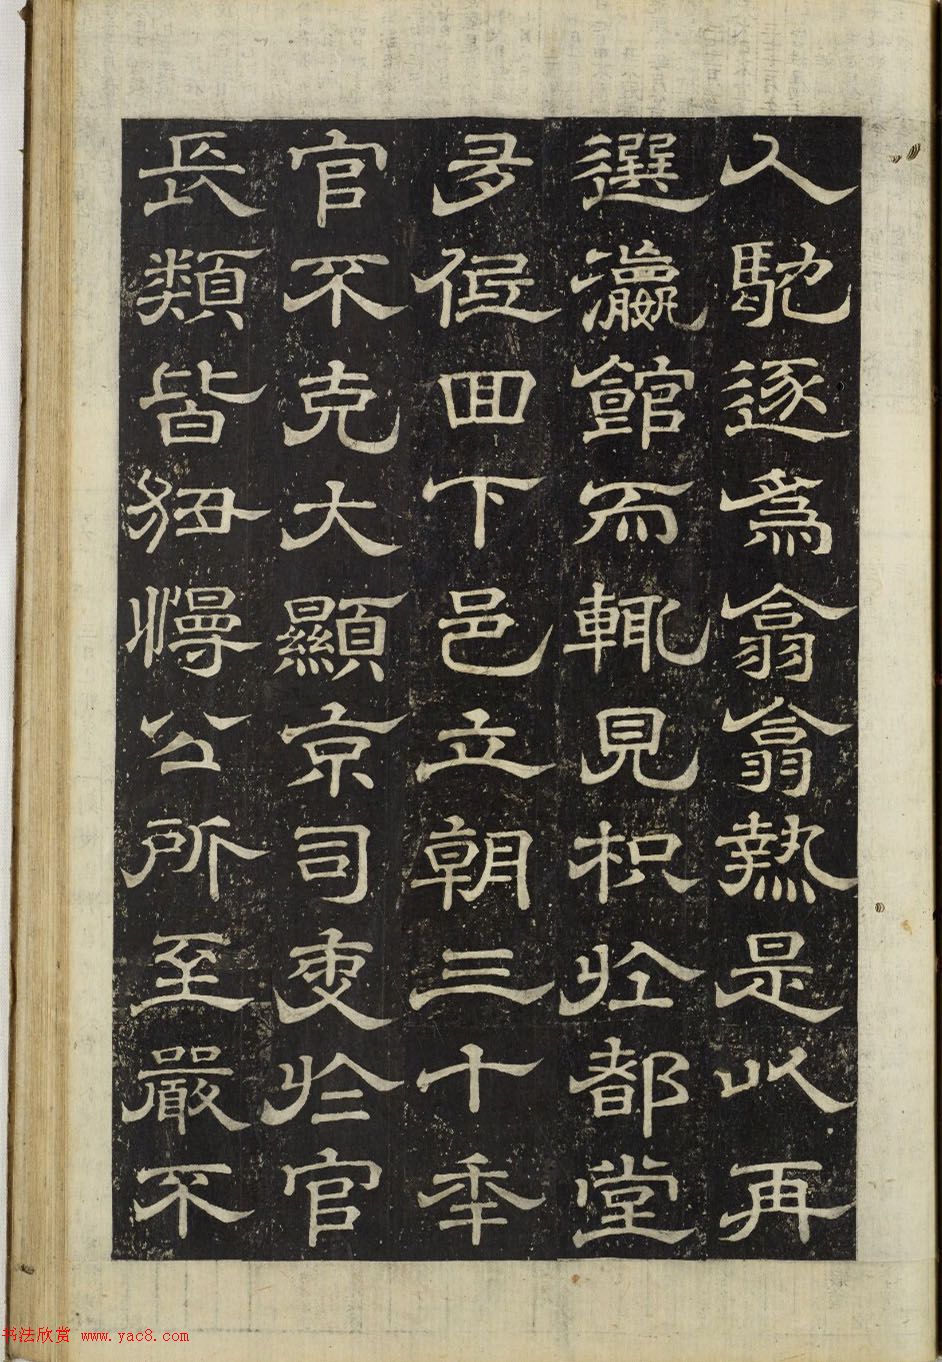 人馳逐為翕翕熱是以再
選瀛館而輒見枳於都堂
多低回下邑立朝三十年
官不克大顯京司吏於官
長類皆狃慢公所至嚴不
书法欣赏 www.yac8.com